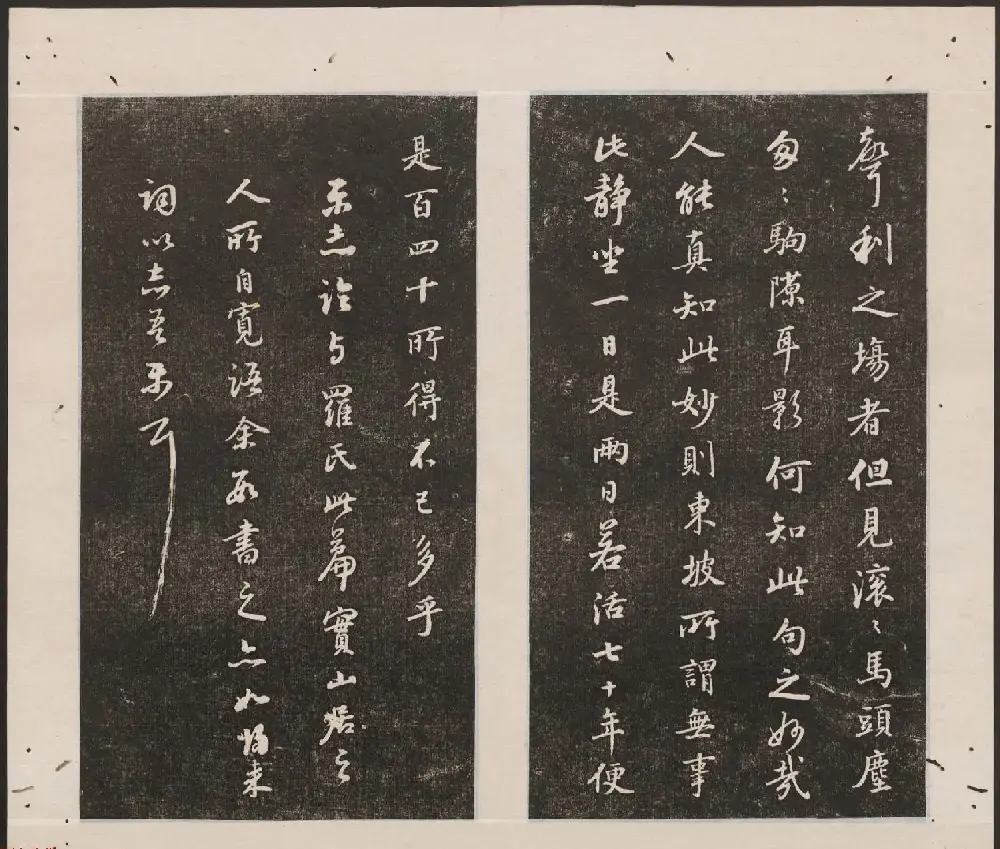 聲利之場者但見滚〻馬頭塵
匆〻駒隙耳影何知此句之妙哉
人能真知此妙則東坡所謂無事
此靜坐一日是兩日若活七十年便
是百四十所得不已多乎
樂志論与羅氏此篇實山居之
人所自寬語余書之亦如歸来
詞以志吾樂耳